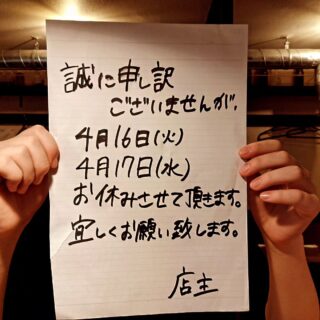 誠に申し訳
ございませんが、
4月16日(火)
4月17日(水)
お休みさせて頂きます。
宜しくお願い致します。
店主